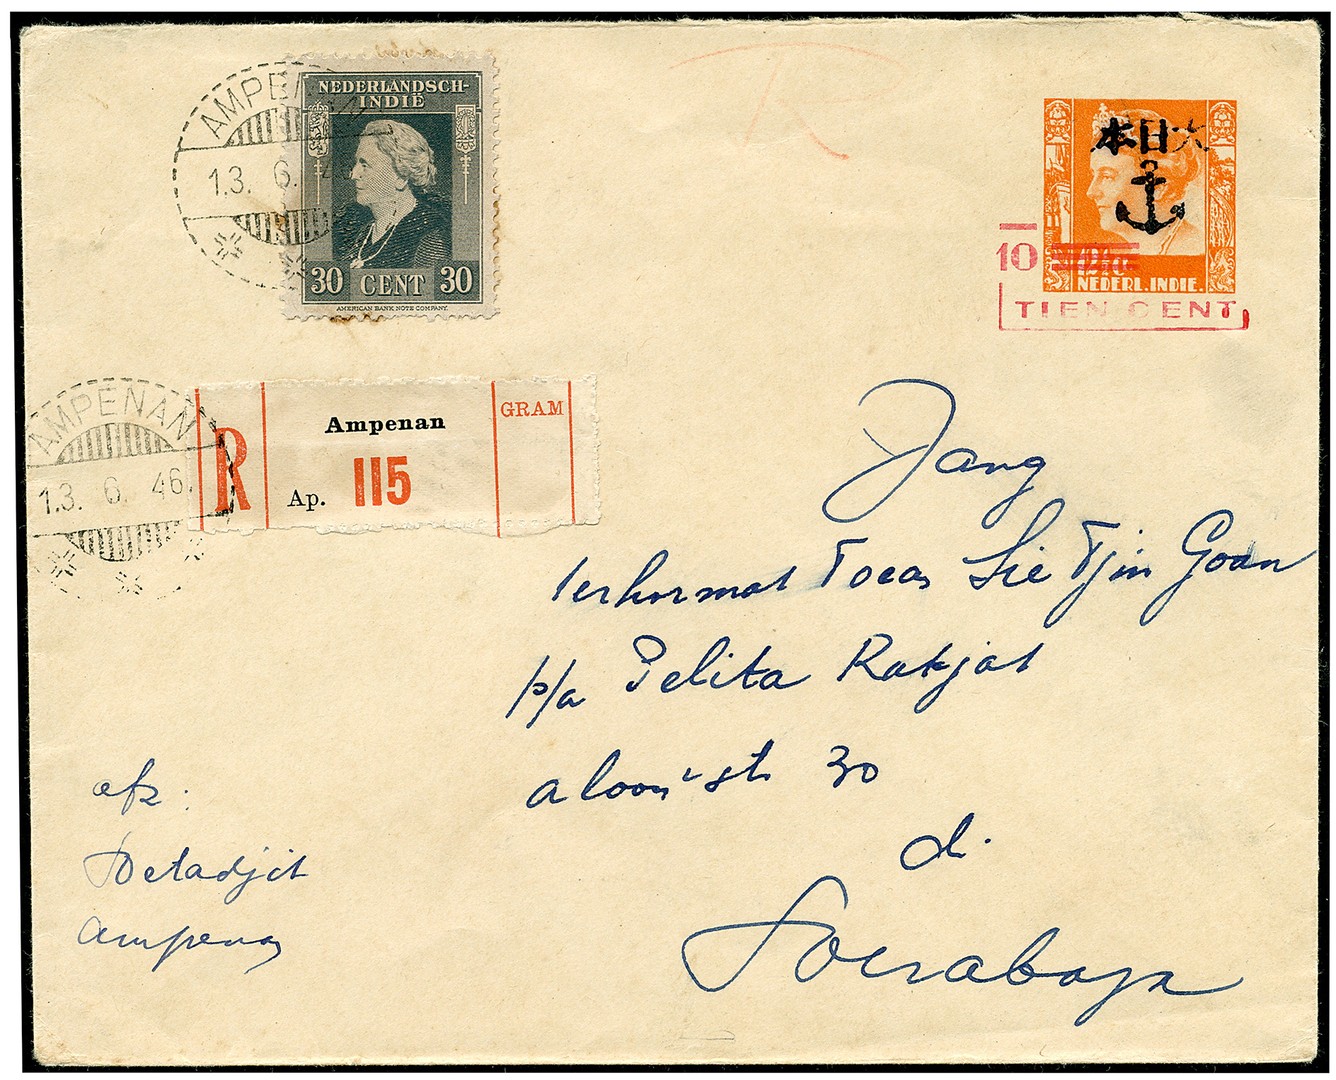 AMPENAN
13. 6. 46
NEDERLANDSCH-
INDIË
30 CENT 30
AMERICAN BANK NOTE COMPANY.
本日大
10
NEDERL. INDIE.
TIEN CENT
R
AMPENAN
13. 6. 46.
R
Ampenan
Ap. 115
GRAM
Jang
terhormat Toean Sie Tjin Goan
p/a Pelita Rakjat
aloon2 str 30
di
Soerabaja
afz:
Soetadjit
Ampenan